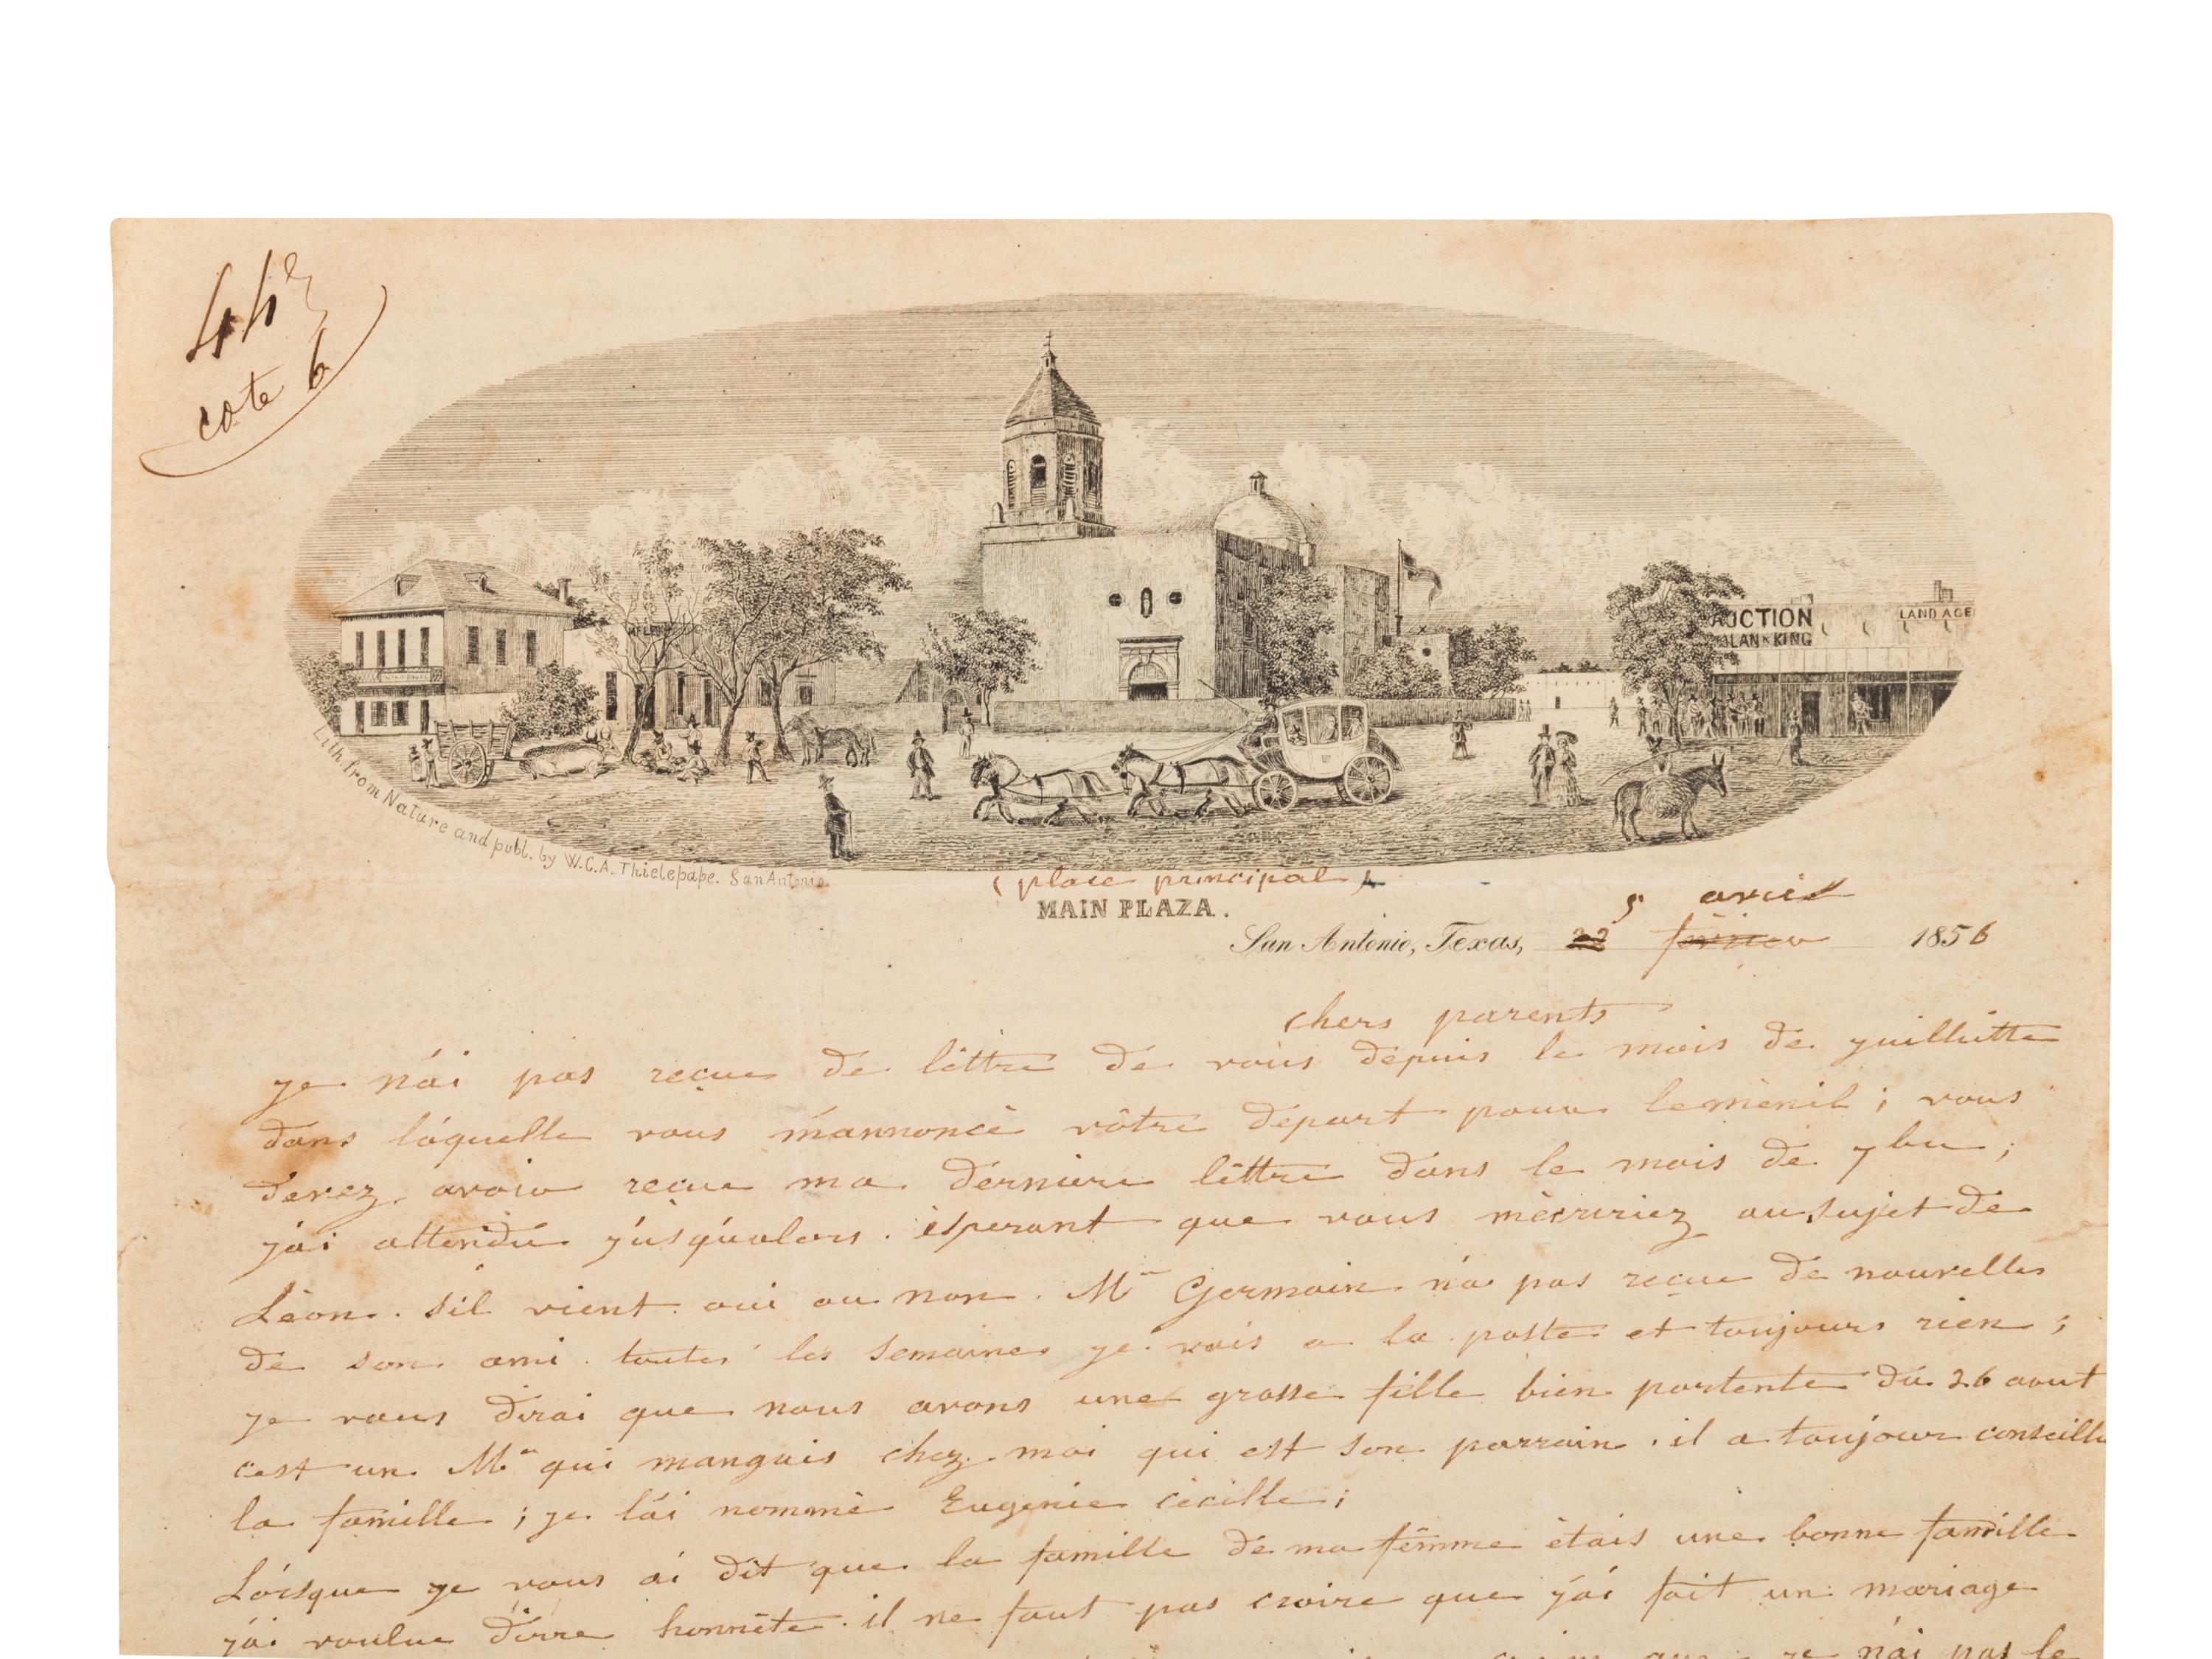 44
cote 6
AUCTION
LAN & KING
LAND AGE
Lith. from Nature and publ. by W.C.A. Thielepape. San Antonio.
(place principal)
MAIN PLAZA.
5 avril
San Antonio, Texas, 22 février 1856
chers parents
je n'ai pas reçue dé lèttre dé vous dépuis le mois dé juilliette
dans láquelle vous m'annoncè vôtre départ pour leménil ; vous
dévez avoir reçue ma dérniere lèttre dans le mois dé 7bre ;
j'ai attendu j'usqu'alors . èsperant que vous mécririez au sujet dé
Lèon . s'il vient oui ou non . Mr Germain n'a pas reçue dé nouvelles
dé son ami . toutes les semaines je vais a la poste et toujours rien ;
je vous dirai que nous avons une grosse fille bien portente du 26 aout
c'est un Mr qui mangais chez moi qui est son parrain . il a toujour conseille
la famille ; je l'ai nommè Eugenie cècille ;
Lórsque je vous ai dit que la famille dé ma fémme ètais une bonne famille
j'ai voulue dirre honnête . il ne faut pas croire que j'ai fait un mariage
que je n'ai pas le